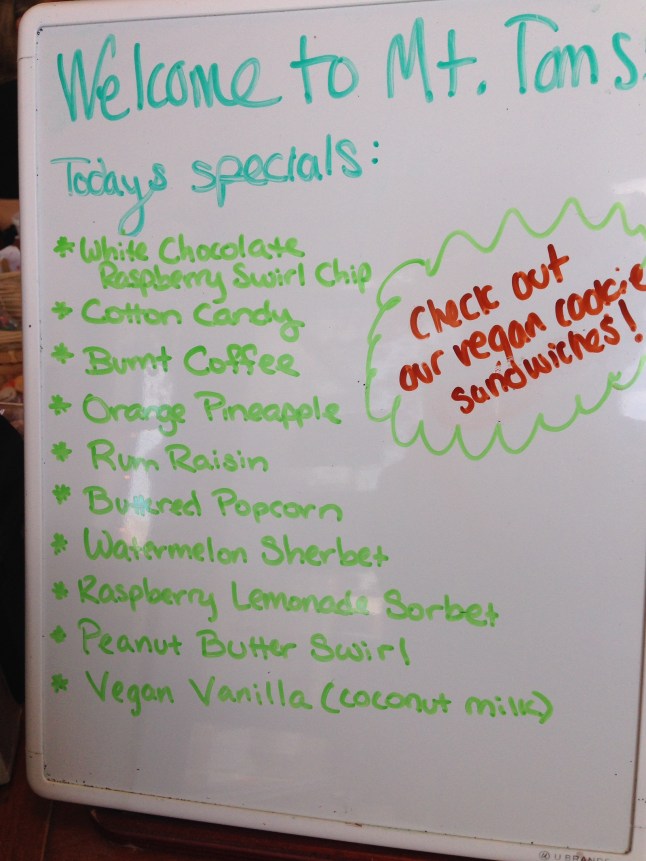 Welcome to Mt. Toms
Todays specials:
* White Chocolate
Raspberry Swirl Chip
* Cotton Candy
* Burnt Coffee
* Orange Pineapple
* Rum Raisin
* Buttered Popcorn
* Watermelon Sherbet
* Raspberry Lemonade Sorbet
* Peanut Butter Swirl
* Vegan Vanilla (coconut milk)
Check out
our vegan cookie
sandwiches!